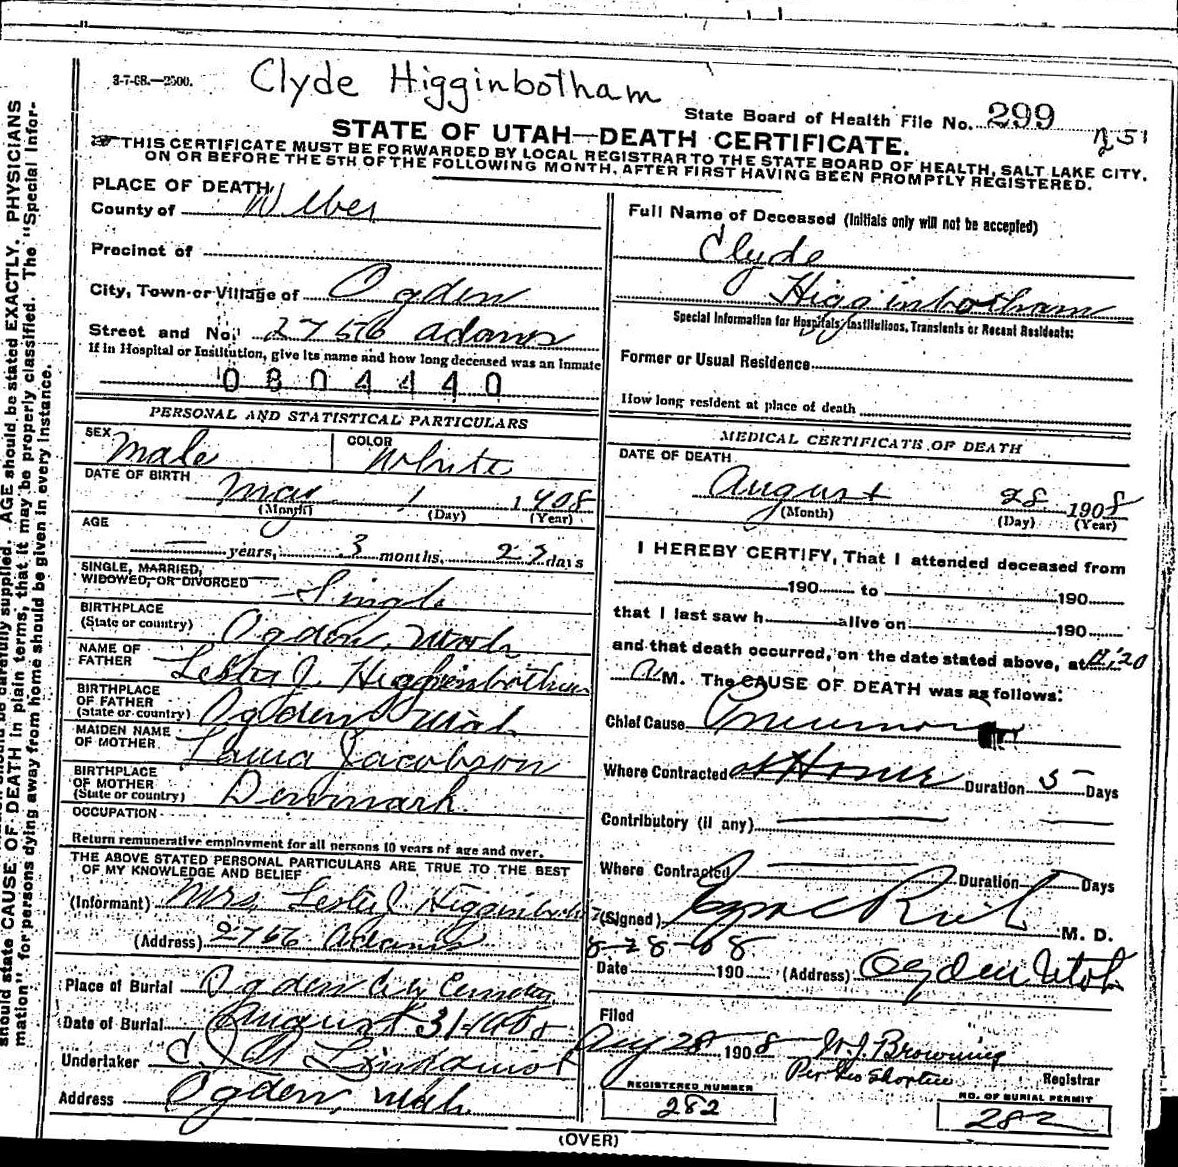 3-7-08.—2500.
Clyde Higginbotham
State Board of Health File No. 299
STATE OF UTAH—DEATH CERTIFICATE.
THIS CERTIFICATE MUST BE FORWARDED BY LOCAL REGISTRAR TO THE STATE BOARD OF HEALTH, SALT LAKE CITY,
ON OR BEFORE THE 5TH OF THE FOLLOWING MONTH, AFTER FIRST HAVING BEEN PROMPTLY REGISTERED.
PLACE OF DEATH
County of Weber
Precinct of
City, Town or Village of Ogden
Street and No. 2756 Adams
If in Hospital or Institution, give its name and how long deceased was an Inmate
0804440
PERSONAL AND STATISTICAL PARTICULARS
SEX Male COLOR White
DATE OF BIRTH May 1 1908
(Month) (Day) (Year)
AGE
— years, 3 months, 27 days
SINGLE, MARRIED,
WIDOWED, OR DIVORCED Single
BIRTHPLACE
(State or country) Ogden, Utah
NAME OF
FATHER Lester J. Higginbotham
BIRTHPLACE
OF FATHER
(State or country) Ogden Utah
MAIDEN NAME
OF MOTHER Laura Jacobson
BIRTHPLACE
OF MOTHER
(State or country) Denmark
OCCUPATION
Return remunerative employment for all persons 10 years of age and over.
THE ABOVE STATED PERSONAL PARTICULARS ARE TRUE TO THE BEST
OF MY KNOWLEDGE AND BELIEF
(Informant) Mrs. Lester J. Higginboth
(Address) 2756 Adams
Place of Burial Ogden City Cemetery
Date of Burial August 31-1908
Undertaker Lindquist
Address Ogden, Utah
Full Name of Deceased (Initials only will not be accepted)
Clyde
Higginbotham
Special Information for Hospitals, Institutions, Transients or Recent Residents:
Former or Usual Residence
How long resident at place of death
MEDICAL CERTIFICATE OF DEATH
DATE OF DEATH
August 28 1908
(Month) (Day) (Year)
I HEREBY CERTIFY, That I attended deceased from
190 to 190
that I last saw h alive on 190
and that death occurred, on the date stated above, at 11:20
A M. The CAUSE OF DEATH was as follows:
Chief Cause Pneumonia
Where Contracted at Home Duration 5 Days
Contributory (if any)
Where Contracted Duration Days
(Signed) M. D.
8-28-08
Date 190 (Address) Ogden Utah
Filed
Aug 28 1908 W. J. Browning
Registrar
REGISTERED NUMBER
282
NO. OF BURIAL PERMIT
282
(OVER)
should state CAUSE OF DEATH in plain terms, that it may be properly classified. The "Special Infor-
mation" for persons dying away from home should be given in every instance.